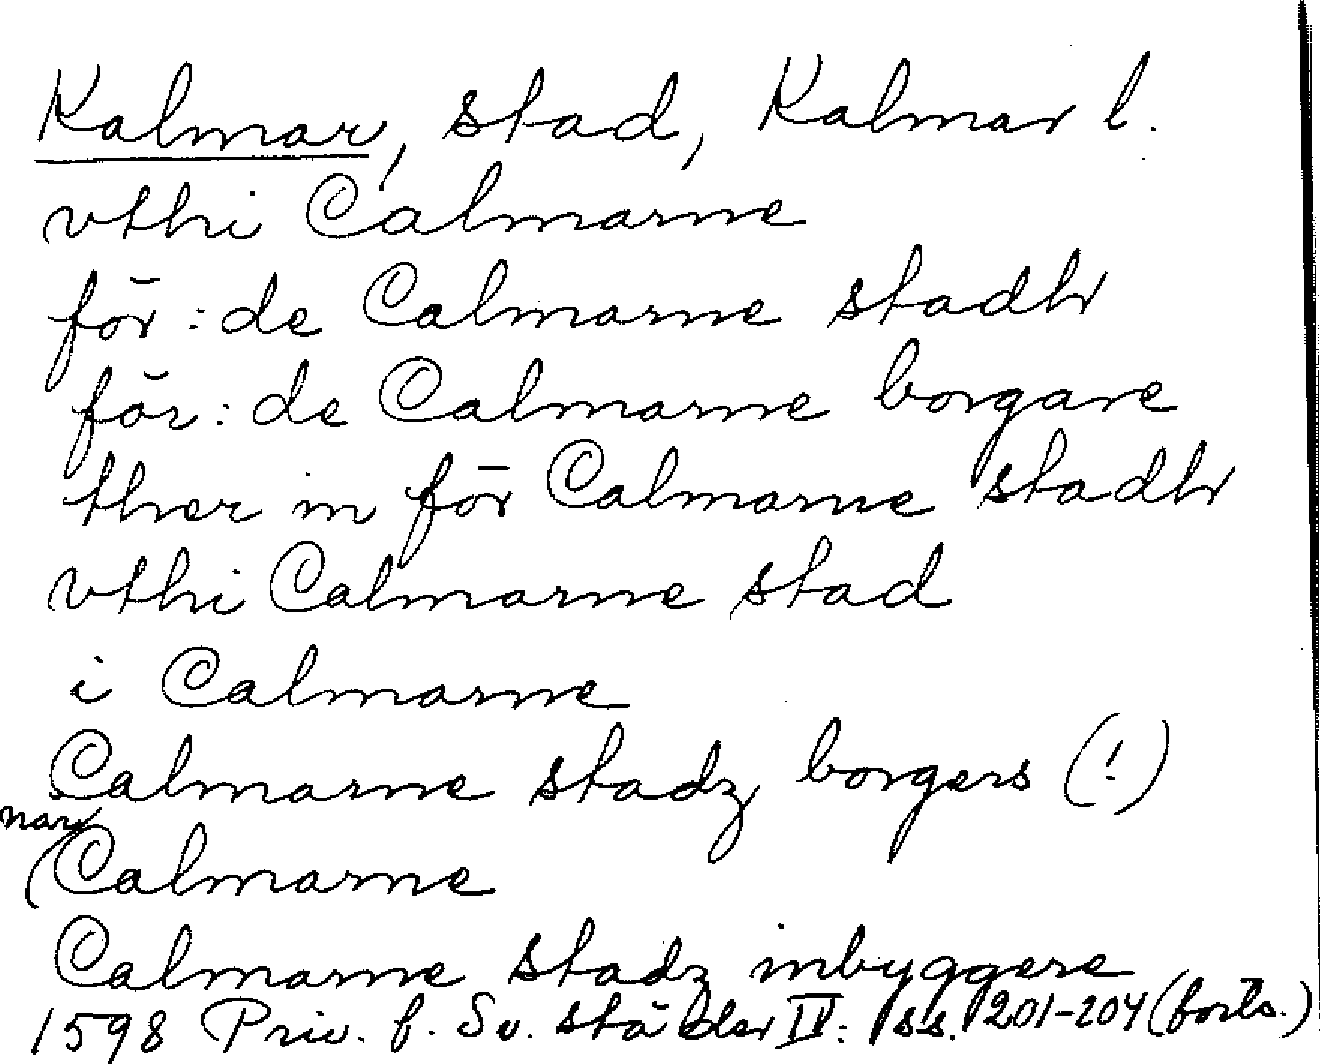 Kalmar, stad, Kalmar l.
vthi Calmarne
för:de Calmarne stadh
för:de Calmarne borgare
ther in för Calmarne stadh
vthi Calmarne stad
i Calmarne
Calmarne stadz borgers (!)
när
(Calmarne
Calmarne stadz inbyggere
1598 Priv. f. Sv. städer IV: ss. 201-204 (forts.)